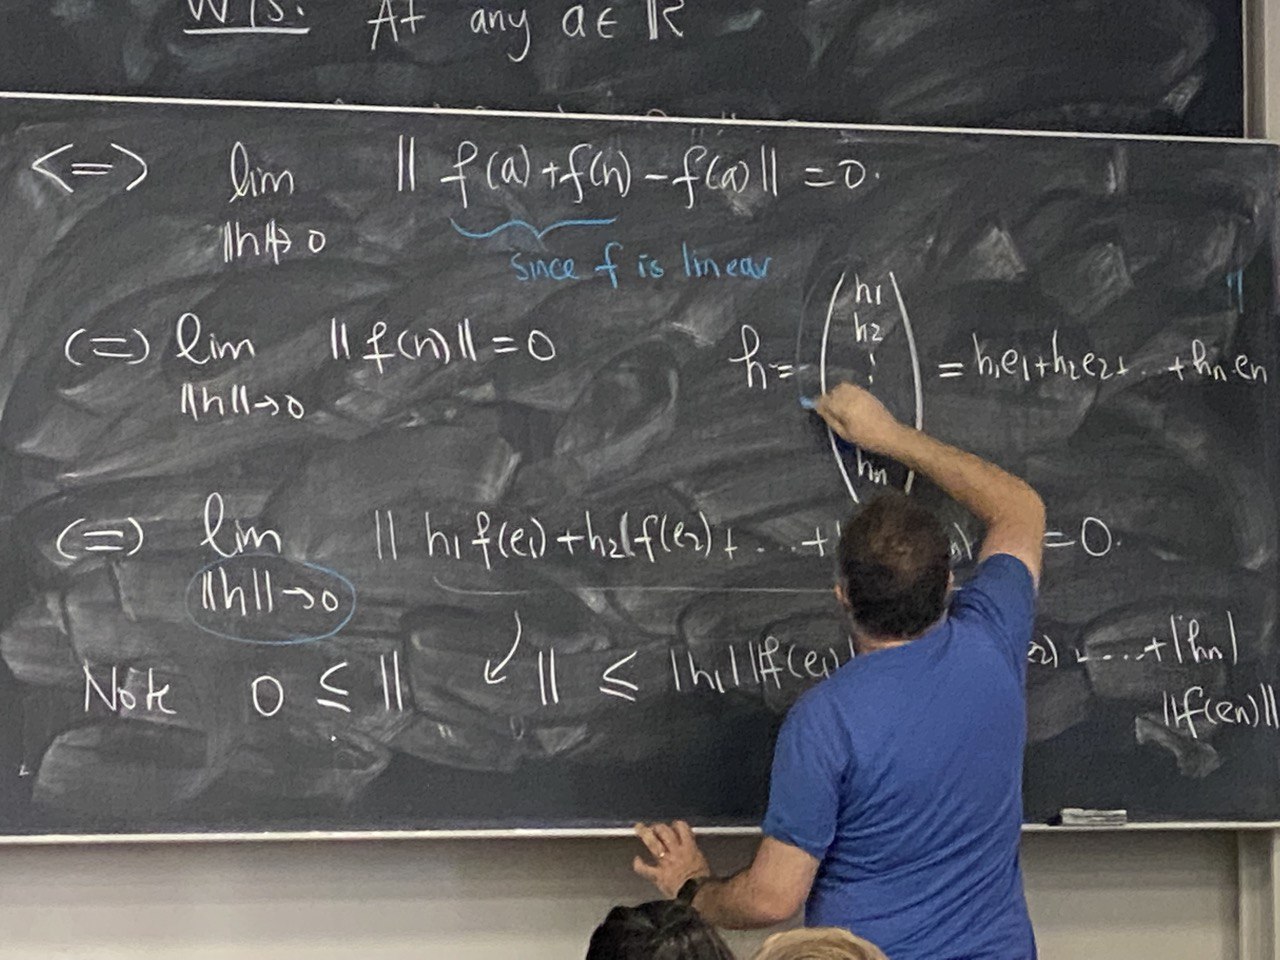 WTS: At any a ∈ ℝ
<=> lim ‖ f(a)+f(h) - f(a) ‖ = 0.
‖h‖→0
since f is linear
(=) lim ‖ f(h) ‖ = 0
‖h‖→0
h = (h1 h2 ⋮ hn) = h1e1 + h2e2 + ... + hn.en
(=) lim ‖ h1 f(e1) + h2(f(e2) + ... + = 0.
‖h‖→0
Note 0 ≤ ‖ ↙ ‖ ≤ |h1| ‖f(e1) e2) ....+ |hn|
‖f(en)‖